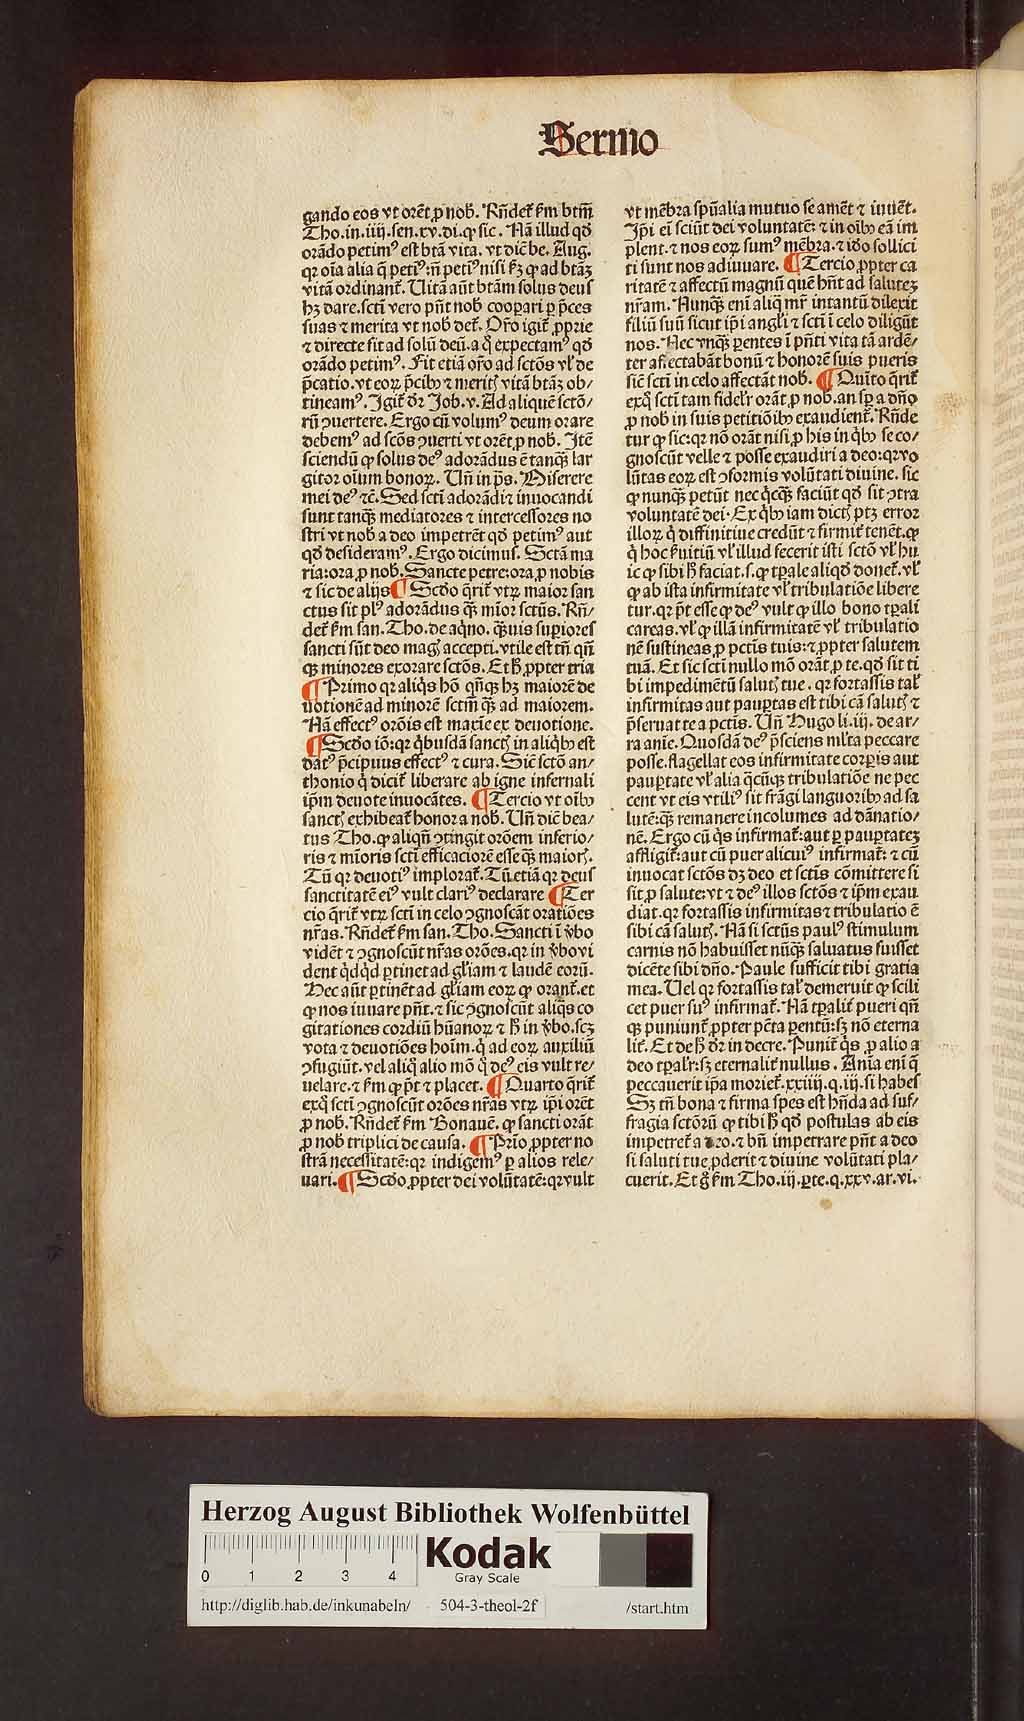 Sermo
gando eos vt orēt ꝓ nob̄. Rn̄det᷑ ẜm btm̄
Tho. in. iiij. sen. xv. di. ꝙ sic. Nā illud qd̄
orādo petimꝰ est btā vita. vt dic̄ be. Aug.
qꝛ oīa alia q̄ petiꝰ: nō petiꝰ nisi ẜꝫ ꝙ ad btāꝫ
vitā ordinant᷑. Uitā aūt btām solus deus
hꝫ dare. sctī vero pn̄t nob̄ cooꝑari ꝑ p̄ces
suas ⁊ merita vt nob̄ det᷑. Or̄o igit᷑ ꝓpꝛie
⁊ directe fit ad solū deū. a q̊ expectamꝰ qd̄
orādo petimꝰ. Fit etiā or̄o ad sctōs vl̓ de
p̄catio. vt eoꝝ p̄cibꝰ ⁊ meritꝭ vitā btāꝫ ob/
tineamꝰ. Igit᷑ dr̄ Job. v. Ad aliquē sctō/
rū ꝯuertere. Ergo cū volumꝰ deum orare
debemꝰ ad scōs ꝯuerti vt orēt ꝓ nob. Itē
sciendū ꝙ solus deꝰ adorādus ē tanqꝫ lar
gitoꝛ oīum bonoꝝ. Uñ in ps̄. Miserere
mei deꝰ ⁊c̄. Sed sctī adorādi ⁊ inuocandi
sunt tanqꝫ mediatores ⁊ intercessores no
stri vt nob̄ a deo impetrēt qd̄ petimꝰ aut
qd̄ desideramꝰ. Ergo dicimus. Sctā ma
ria: ora ꝓ nob. Sancte petre: ora ꝓ nobis
⁊ sic de alijs ¶ Scd̄o q̄rit᷑ vtꝝ maior san
ctus sit plꝰ adorādus qꝫ mīor sctūs. Rn̄/
det᷑ ẜm san. Tho. de aq̄no. qꝫuis suꝑiores
sancti sūt deo magꝭ accepti. vtile est tn̄ qn̄
qꝫ minores exorare sctōs. Et h̄ ꝓpter tria
¶ Primo qꝛ aliqͥs hō qn̄qꝫ hꝫ maiorē de
uotionē ad minorē sctm̄ qꝫ ad maiorem.
Nā effectꝰ orōis est maxīe ex deuotione.
¶ Scd̄o iō: qꝛ qͥbusdā sanctꝭ in aliqͥbꝰ est
datꝰ p̄cipuus effectꝰ ⁊ cura. Sic̄ sctō an/
thonio q̄ dicit᷑ liberare ab igne infernali
ip̄m deuote inuocātes. ¶ Tercio vt oībꝰ
sanctꝭ exhibeat᷑ honor a nob. Uñ dic̄ bea/
tus Tho. ꝙ aliqn̄ ꝯtingit orōem inferio/
ris ⁊ mīoris sctī efficaciorē esse qꝫ maiorꝭ.
Tū qꝛ deuotiꝰ imploratᷓ. Tū etiā qꝛ deus
sanctitatē eiꝰ vult clariꝰ declarare ¶ Ter
cio q̄rit᷑ vtꝝ sctī in celo ꝯgnoscāt oratiōes
nr̄as. Rn̄det᷑ ẜm san. Tho. Sancti ī v̄bo
vidēt ⁊ ꝯgnoscūt nr̄as orōes. qꝛ in v̄bo vi
dent qͥdqͥd ꝑtinet ad gl̓iam ⁊ laudē eorū.
Hec aūt ꝑtinēt ad gl̓iam eoꝝ ꝙ orant᷑. et
ꝙ nos iuuare pn̄t. ⁊ sic ꝯgnoscūt aliqͣs co
gitationes cordiū hūanoꝝ ⁊ h̄ in v̄bo. scꝫ
vota ⁊ deuotiōes hoīm. qͥ ad eoꝝ auxiliū
ꝯfugiūt. vel aliq̊ alio mō q̊ deꝰ eis vult re/
uelare. ⁊ ẜm ꝙ p̄t ⁊ placet. ¶ Quarto q̄rit᷑
exq̊ sctī ꝯgnoscūt orōes nr̄as vtꝝ ip̄i orēt
ꝓ nob. Rn̄det᷑ ẜm Bonauē. ꝙ sancti orāt
ꝓ nob̄ triplici de causa. ¶ Prīo ꝓpter no
strā necessitatē: qꝛ indigemꝰ ꝑ alios rele/
uari. ¶ Scd̄o ꝓpter dei volūtatē: qꝛ vult
vt mēbra spūalia mutuo se amēt ⁊ iuuēt.
Ip̄i eī sciūt dei voluntatē: ⁊ in oībꝰ eā im
plent. ⁊ nos eoꝝ sumꝰ mēbra. ⁊ iō sollici
ti sunt nos adiuuare. ¶ Tercio ꝓpter ca
ritatē ⁊ affectū magnū quē hn̄t ad salutē
nr̄am. Nunqꝫ enī aliq̄ mr̄ intantū dilexit
filiū suū sicut ip̄i angl̓i ⁊ sctī ī celo diligūt
nos. Nec vnqꝫ ꝑentes ī pn̄ti vita tā ardē/
ter affectabāt bonū ⁊ honorē suis pueris
sic̄ sctī in celo affectāt nob. ¶ Quīto q̄rit᷑
exq̊ sctī tam fidel̓r orāt ꝓ nob. an sp̄ a dn̄o
ꝓ nob in suis petitiōibꝰ exaudient᷑. Rn̄de
tur ꝙ sic: qꝛ nō orāt nisi ꝓ his in qͥbꝰ se co/
gnoscūt velle ⁊ posse exaudiri a deo: qꝛ vo
lūtas eoꝝ est ꝯformis volūtati diuine. sic
ꝙ nunqꝫ petūt nec qͥcqꝫ faciūt qd̄ sit ꝯtra
voluntatē dei. Ex qͥbꝰ iam dictꝭ ptꝫ error
illoꝝ qͥ diffinitiue credūt ⁊ firmit᷑ tenēt. ꝙ
qͥ hoc ẜuitiū vl̓ illud fecerit isti sctō vl̓ hu
ic ꝙ sibi h̄ faciat. s. ꝙ tꝑale aliqd̄ donet᷑. vl̓
ꝙ ab ista infirmitate vl̓ tribulatiōe libere
tur. qꝛ p̄t esse ꝙ deꝰ vult ꝙ illo bono tꝑali
careas. vl̓ ꝙ illā infirmitatē vl̓ tribulatio
nē sustineas ꝓ pctīs tuis: ⁊ ꝓpter salutem
tuā. Et sic sctī nullo mō orāt ꝓ te. qd̄ sit ti
bi impedimētū salutꝭ tue. qꝛ fortassis tal̓
infirmitas aut pauꝑtas est tibi cā salutꝭ ⁊
p̄seruat te a pctīs. Uñ Hugo li. iij. de ar/
ra anīe. Quosdā deꝰ p̄sciens ml̓ta peccare
posse. flagellat eos infirmitate corꝑis aut
pauꝑtate vl̓ alia q̄cūqꝫ tribulatiōe ne pec
cent vt eis vtiliꝰ sit frāgi languoribꝰ ad sa
lutē: qꝫ remanere incolumes ad dānatio/
nē. Ergo cū qͥs infirmat᷑: aut ꝑ pauꝑtateꝫ
affligit᷑: aut cū puer alicuiꝰ infirmat᷑: ⁊ cū
inuocat sctōs dꝫ deo et sctīs cōmittere si
sit ꝓ salute: vt ⁊ deꝰ illos sctōs ⁊ ip̄m exau
diat. qꝛ fortassis infirmitas ⁊ tribulatio ē
sibi cā salutꝭ. Nā si sctūs paulꝰ stimulum
carnis nō habuisset nūqꝫ saluatus fuisset
dicēte sibi dn̄o. Paule sufficit tibi gratia
mea. Uel qꝛ fortassis tal̓ demeruit ꝙ scili
cet puer suꝰ infirmat᷑. Nā tꝑalit᷑ pueri qn̄
qꝫ puniunt᷑ ꝓpter pctā ꝑentū: sꝫ nō eterna
lit᷑. Et de h̄ dr̄ in decre. Punit᷑ qͥs ꝓ alio a
deo tꝑalr̄: sꝫ eternalit᷑ nullus. Anīa enī q̄
peccauerit ip̄a moriet᷑. xxiiij. q. iij. si habes
Sꝫ tn̄ bona ⁊ firma spes est hn̄da ad suf/
fragia sctōrū ꝙ tibi h̄ qd̄ postulas ab eis
impetret᷑ a deo. ⁊ bn̄ impetrare pn̄t a deo
si saluti tue ꝓderit ⁊ diuine volūtati pla/
cuerit. Et g̊ ẜm Tho. iij. ꝑte. q. xxv. ar. vi.
Herzog August Bibliothek Wolfenbüttel
0 1 2 3 4
Kodak
Gray Scale
http://diglib.hab.de/inkunabeln/ 504-3-theol-2f /start.htm